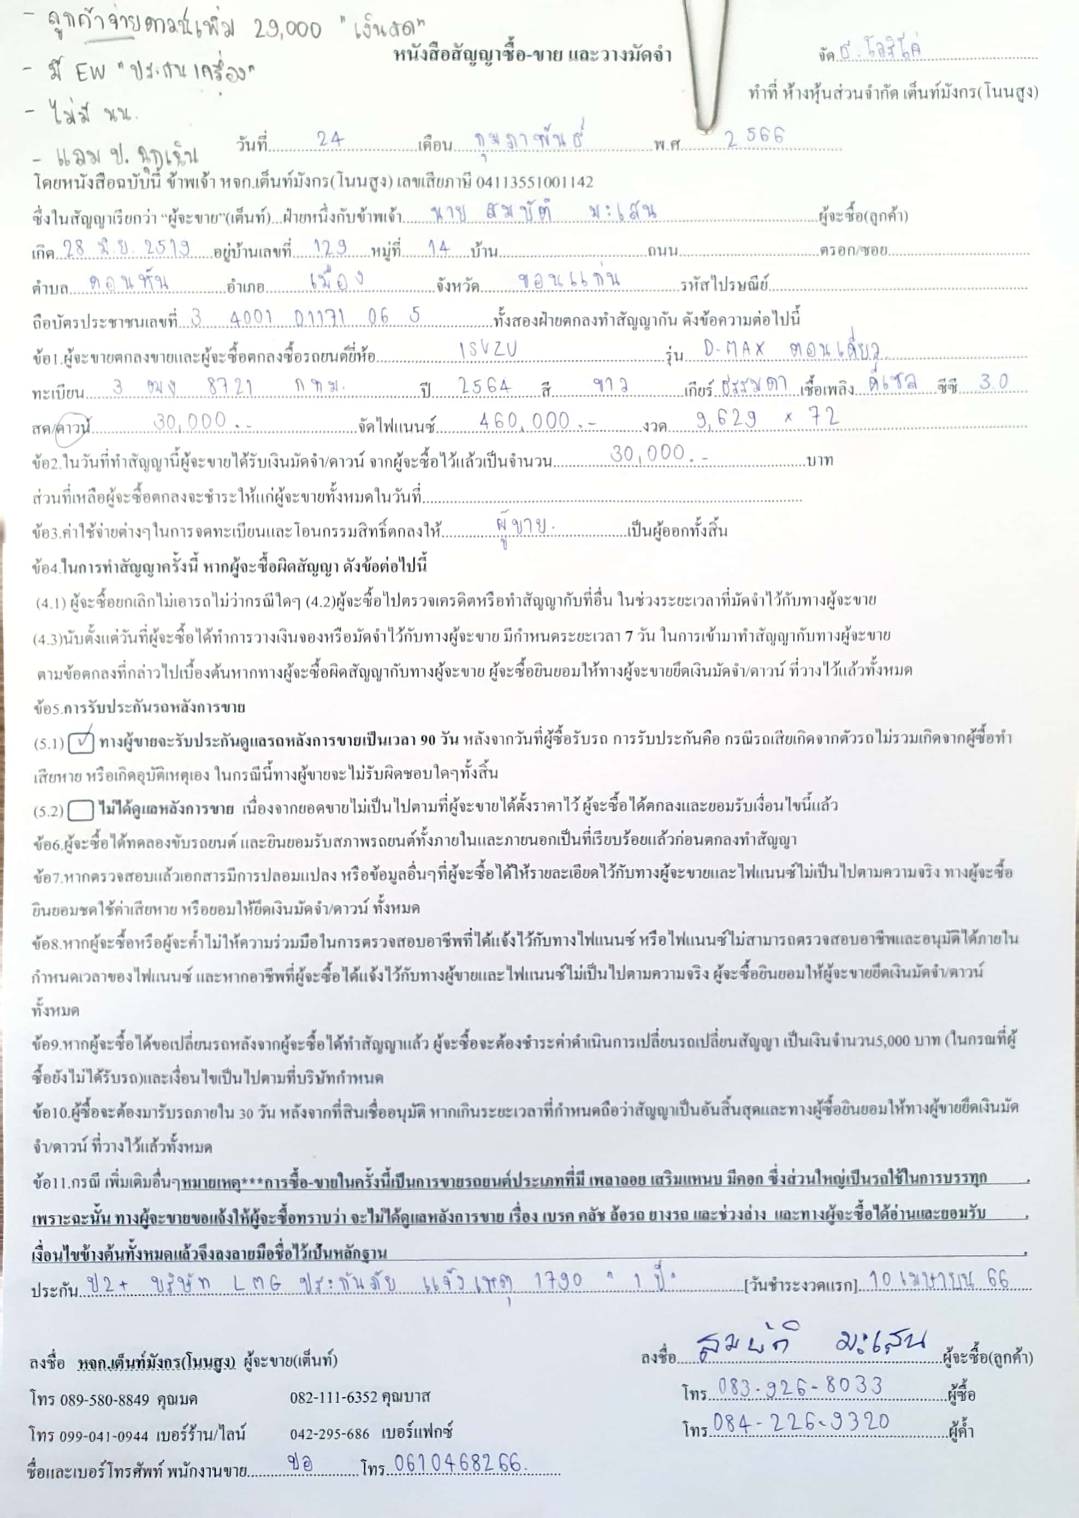 - ลูกค้าจ่ายดาวน์เพิ่ม 29,000 "เงินสด"
- มี EW "ประกันเครื่อง"
- ไม่มี นน.
- แถม ป. ฉุกเฉิน
หนังสือสัญญาซื้อ-ขาย และวางมัดจำ
จัด ธ.
ทำที่ ห้างหุ้นส่วนจำกัด เต็นท์มังกร(โนนสูง)
วันที่ 24 เดือน กุมภาพันธ์ พ.ศ 2566
โดยหนังสือฉบับนี้ ข้าพเจ้า หจก.เต็นท์มังกร(โนนสูง) เลขเสียภาษี 04113551001142
ซึ่งในสัญญาเรียกว่า "ผู้จะขาย"(เต็นท์)...ฝ่ายหนึ่งกับข้าพเจ้า นาย สมบัติ มะเสน ผู้จะซื้อ(ลูกค้า)
เกิด 28 มิ.ย. 2519 อยู่บ้านเลขที่ 129 หมู่ที่ 14 บ้าน ถนน ตรอก/ซอย
ตำบล ดอนหัน อำเภอ เมือง จังหวัด ขอนแก่น รหัสไปรษณีย์
ถือบัตรประชาชนเลขที่ 3 4001 01171 06 5 ทั้งสองฝ่ายตกลงทำสัญญากัน ดังข้อความต่อไปนี้
ข้อ1.ผู้จะขายตกลงขายและผู้จะซื้อตกลงซื้อรถยนต์ยี่ห้อ ISUZU รุ่น D-MAX ตอนเดียว
ทะเบียน 3 ฒง 8721 กทม. ปี 2564 สี ขาว เกียร์ ธรรมดา เชื้อเพลิง ดีเซล ซีซี 3.0
สด/ดาวน์ 30,000.- จัดไฟแนนซ์ 460,000.- งวด 9,629 × 72
ข้อ2.ในวันที่ทำสัญญานี้ผู้จะขายได้รับเงินมัดจำ/ดาวน์ จากผู้จะซื้อไว้แล้วเป็นจำนวน 30,000.- บาท
ส่วนที่เหลือผู้จะซื้อตกลงจะชำระให้แก่ผู้จะขายทั้งหมดในวันที่
ข้อ3.ค่าใช้จ่ายต่างๆในการจดทะเบียนและโอนกรรมสิทธิ์ตกลงให้ ผู้ขาย. เป็นผู้ออกทั้งสิ้น
ข้อ4.ในการทำสัญญาครั้งนี้ หากผู้จะซื้อผิดสัญญา ดังข้อต่อไปนี้
(4.1) ผู้จะซื้อยกเลิกไม่เอารถไม่ว่ากรณีใดๆ (4.2)ผู้จะซื้อไปตรวจเครดิตหรือทำสัญญากับที่อื่น ในช่วงระยะเวลาที่มัดจำไว้กับทางผู้จะขาย
(4.3)นับตั้งแต่วันที่ผู้จะซื้อได้ทำการวางเงินจองหรือมัดจำไว้กับทางผู้จะขาย มีกำหนดระยะเวลา 7 วัน ในการเข้ามาทำสัญญากับทางผู้จะขาย
ตามข้อตกลงที่กล่าวไปเบื้องต้นหากทางผู้จะซื้อผิดสัญญากับทางผู้จะขาย ผู้จะซื้อยินยอมให้ทางผู้จะขายยึดเงินมัดจำ/ดาวน์ ที่วางไว้แล้วทั้งหมด
ข้อ5.การรับประกันรถหลังการขาย
(5.1) ✓ ทางผู้ขายจะรับประกันดูแลรถหลังการขายเป็นเวลา 90 วัน หลังจากวันที่ผู้ซื้อรับรถ การรับประกันคือ กรณีรถเสียเกิดจากตัวรถไม่รวมเกิดจากผู้ซื้อทำ
เสียหาย หรือเกิดอุบัติเหตุเอง ในกรณีนี้ทางผู้ขายจะไม่รับผิดชอบใดๆทั้งสิ้น
(5.2) ไม่ได้ดูแลหลังการขาย เนื่องจากยอดขายไม่เป็นไปตามที่ผู้จะขายได้ตั้งราคาไว้ ผู้จะซื้อได้ตกลงและยอมรับเงื่อนไขนี้แล้ว
ข้อ6.ผู้จะซื้อได้ทดลองขับรถยนต์ และยินยอมรับสภาพรถยนต์ทั้งภายในและภายนอกเป็นที่เรียบร้อยแล้วก่อนตกลงทำสัญญา
ข้อ7.หากตรวจสอบแล้วเอกสารมีการปลอมแปลง หรือข้อมูลอื่นๆที่ผู้จะซื้อได้ให้รายละเอียดไว้กับทางผู้จะขายและไฟแนนซ์ไม่เป็นไปตามความจริง ทางผู้จะซื้อ
ยินยอมชดใช้ค่าเสียหาย หรือยอมให้ยึดเงินมัดจำ/ดาวน์ ทั้งหมด
ข้อ8.หากผู้จะซื้อหรือผู้จะค้ำไม่ให้ความร่วมมือในการตรวจสอบอาชีพที่ได้แจ้งไว้กับทางไฟแนนซ์ หรือไฟแนนซ์ไม่สามารถตรวจสอบอาชีพและอนุมัติได้ภายใน
กำหนดเวลาของไฟแนนซ์ และหากอาชีพที่ผู้จะซื้อได้แจ้งไว้กับทางผู้ขายและไฟแนนซ์ไม่เป็นไปตามความจริง ผู้จะซื้อยินยอมให้ผู้จะขายยึดเงินมัดจำ/ดาวน์
ทั้งหมด
ข้อ9.หากผู้จะซื้อได้ขอเปลี่ยนรถหลังจากผู้จะซื้อได้ทำสัญญาแล้ว ผู้จะซื้อจะต้องชำระค่าดำเนินการเปลี่ยนรถเปลี่ยนสัญญา เป็นเงินจำนวน5,000 บาท (ในกรณที่ผู้
ซื้อยังไม่ได้รับรถ)และเงื่อนไขเป็นไปตามที่บริษัทกำหนด
ข้อ10.ผู้ซื้อจะต้องมารับรถภายใน 30 วัน หลังจากที่สินเชื่ออนุมัติ หากเกินระยะเวลาที่กำหนดถือว่าสัญญาเป็นอันสิ้นสุดและทางผู้ซื้อยินยอมให้ทางผู้ขายยึดเงินมัด
จำ/ดาวน์ ที่วางไว้แล้วทั้งหมด
ข้อ11.กรณี เพิ่มเติมอื่นๆหมายเหตุ***การซื้อ-ขายในครั้งนี้เป็นการขายรถยนต์ประเภทที่มี เพลาลอย เสริมแหนบ มีคอก ซึ่งส่วนใหญ่เป็นรถใช้ในการบรรทุก
เพราะฉะนั้น ทางผู้จะขายขอแจ้งให้ผู้จะซื้อทราบว่า จะไม่ได้ดูแลหลังการขาย เรื่อง เบรค คลัช ล้อรถ ยางรถ และช่วงล่าง และทางผู้จะซื้อได้อ่านและยอมรับ
เงื่อนไขข้างต้นทั้งหมดแล้วจึงลงลายมือชื่อไว้เป็นหลักฐาน
ประกัน ป2+ บริษัท LMG ประกันภัย แจ้งเหตุ 1790 "1 ปี" [วันชำระงวดแรก] 10 เมษายน 66
ลงชื่อ หจก.เต็นท์มังกร(โนนสูง) ผู้จะขาย(เต็นท์)
ลงชื่อ สมบัติ มะเสน ผู้จะซื้อ(ลูกค้า)
โทร 089-580-8849 คุณมด 082-111-6352 คุณบาส
โทร 083-926-8033 ผู้ซื้อ
โทร 099-041-0944 เบอร์ร้าน/ไลน์ 042-295-686 เบอร์แฟกซ์
โทร 084-226-9320 ผู้ค้ำ
ชื่อและเบอร์โทรศัพท์ พนักงานขาย ปอ โทร 0610468266.